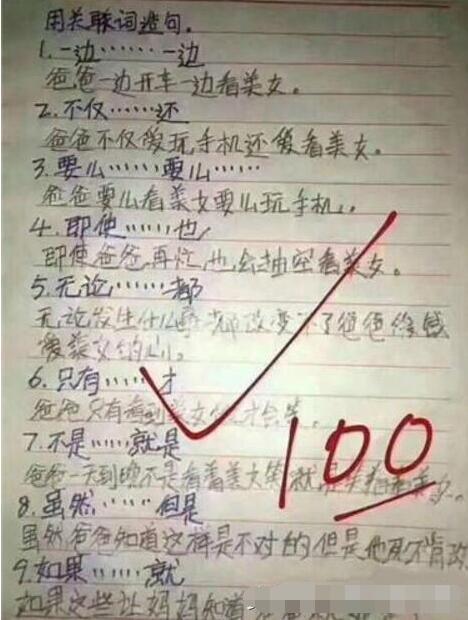 用关联词造句。
1.一边……一边
爸爸一边开车一边看美女。
2.不仅……还
爸爸不仅爱玩手机还爱看美女。
3.要么……要么……
爸爸要么看美女要么玩手机。
4.即使……也
即使爸爸再忙也会抽空看美女。
5.无论……都
无论发生什么事都改变不了爸爸
爱美女的心。
6.只有……才
爸爸只有看到美女 才会笑。
7.不是……就是
爸爸一天到晚不是看着美女笑就是 美女。
8.虽然……但是
虽然爸爸知道这样是不对的但是他死不肯改
9.如果……就
如果这些让妈妈知道
100